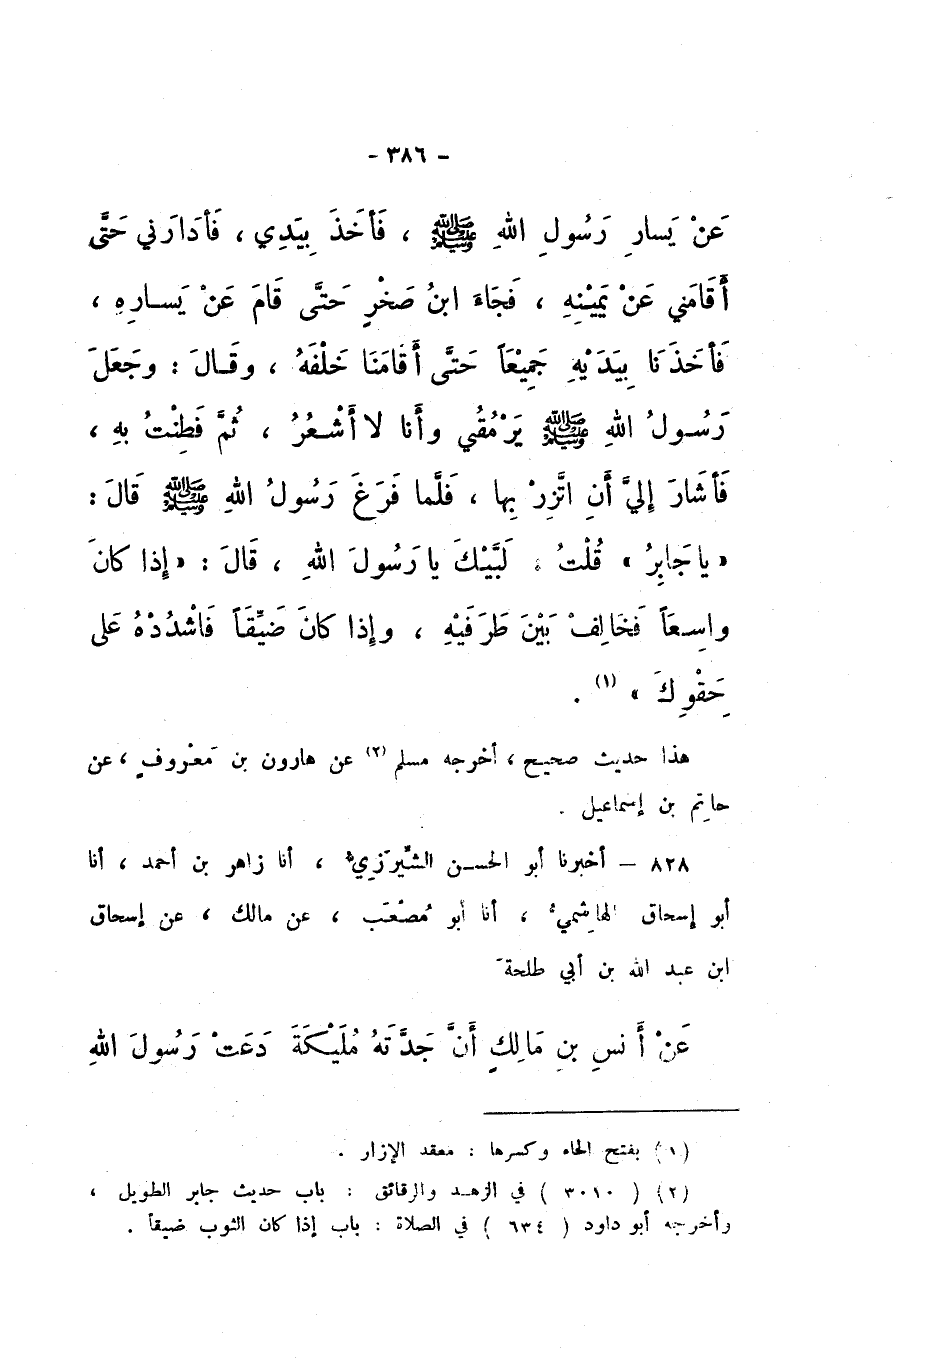 - ٣٨٦ -
عَنْ يَسارِ رَسُولِ اللهِ ﷺ ، فَأَخَذَ بِيَدِي ، فَأَدَارَني حَتَّى
أَقَامَني عَنْ يَمِيْنِهِ ، فَجَاءَ ابنُ صَخْرٍ حَتَّى قَامَ عَنْ يَسـارِهِ ،
فَأَخَذَنَا بِيَدَيْهِ جَمِيْعَاً حَتَّى أَقَامَنَا خَلْفَهُ ، وقَـالَ : وجَعَلَ
رَسُـولُ اللهِ ﷺ يَرْمُقُي وأَنا لا أَشْـعُرُ ، ثُمَّ فَطِنْتُ بِهِ ،
فَأَشَارَ إِليَّ أَنِ اتَّزِرْ بِها ، فَلَّما فَرَغَ رَسُولُ اللهِ ﷺ قَالَ :
« يا جَابِرُ » قُلْتُ : لَبَّيْكَ يا رَسُولَ اللهِ ، قَالَ : « إِذا كانَ
واسِـعَاً فَخَالِفْ بَيْنَ طَرَفَيْهِ ، وإِذا كانَ ضَيِّقَاً فَاشْدُدْهُ عَلى
حَِقْوِكَ » (١) .
هذا حديث صحيح ، أخرجه مسلم (٢) عن هارون بن مَعْروفٍ ، عن
حاتِم بن إسماعيل .
٨٢٨ – أخبرنا أبو الحسـن الشِّيرَزِيُّ ، أنا زاهر بن أحمد ، أنا
أبو إسحاق الهاشِميُّ ، أنا أبو مُصْعَب ، عن مالك ، عن إسحاق
ابن عبد الله بن أبي طلحةَ
عَنْ أَنسِ بنِ مَالِكٍ أَنَّ جَدَّتَهُ مُلَيْكَةَ دَعَتْ رَسُولَ اللهِ
(١) بفتح الحاء وكسرها : معقد الإزار .
(٢) ( ٣٠١٠ ) في الزهـد والرقائق : باب حديث جابر الطويل ،
وأخرجه أبو داود ( ٦٣٤ ) في الصلاة : باب إذا كان الثوب ضيقاً .